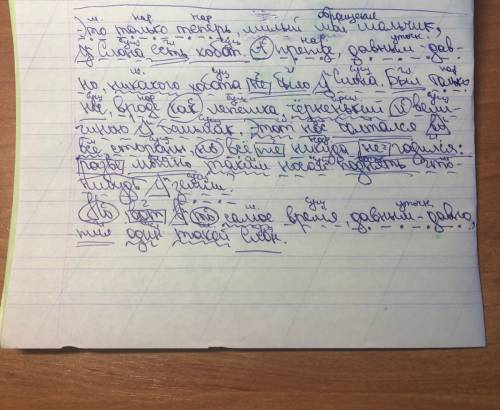 м. нар нар обращение
Это только теперь, милый мой мальчик,
у Слона есть хобот. А прежде давным-дав-
но, никакого хобота не было у Слона. Был только
нос, вроде как лепешка, чёрненький и вели-
чиною с башмак. Этот нос болтался во
все стороны, но всё же никуда не годился:
разве можно таким носом поднять что-
нибудь с земли.
Но вот в то самое время, давным-давно,
жил один такой слон.